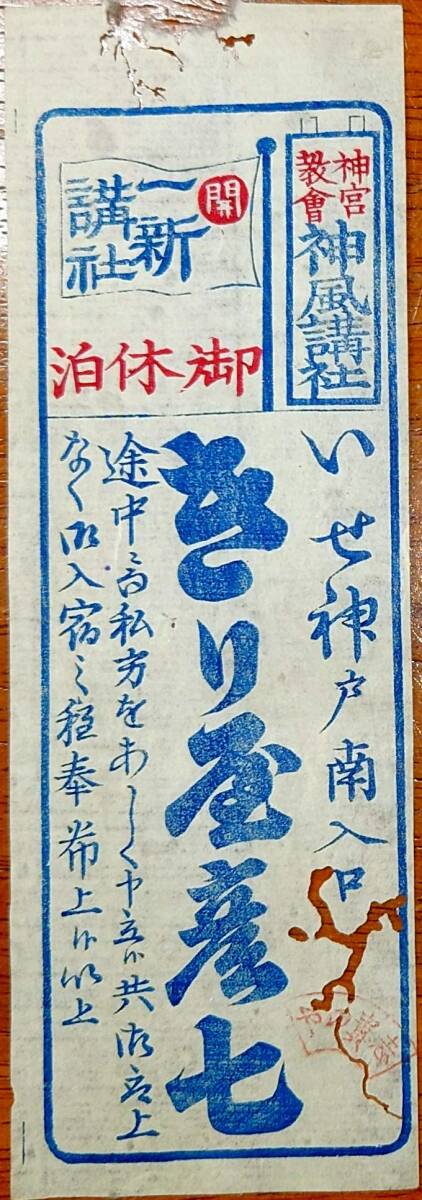 神宮
教會
神風講社
開
一新
講社
御休泊
いせ神戸南入口
きり屋彦七
途中ニ而私方をあしく申立候共御言上
なく御入宿之程奉希上候以上